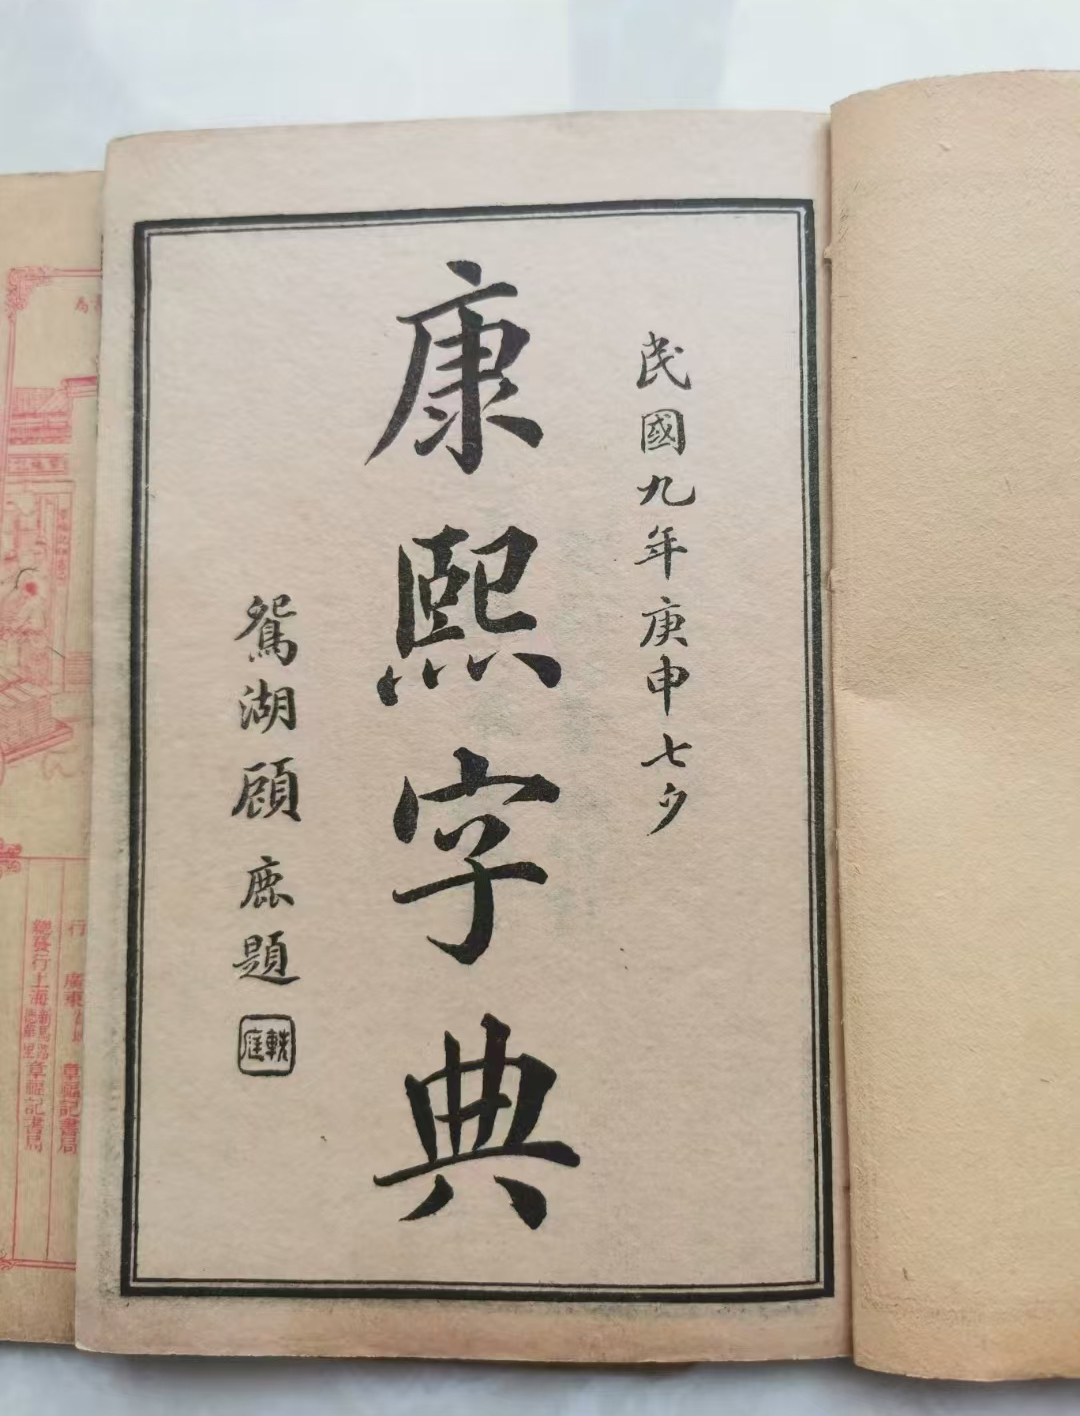 民國九年庚申七夕
康熙字典
鴛湖顧鹿題
軼庭
行 廣東
章福記書局
總發行上海
章福記書局